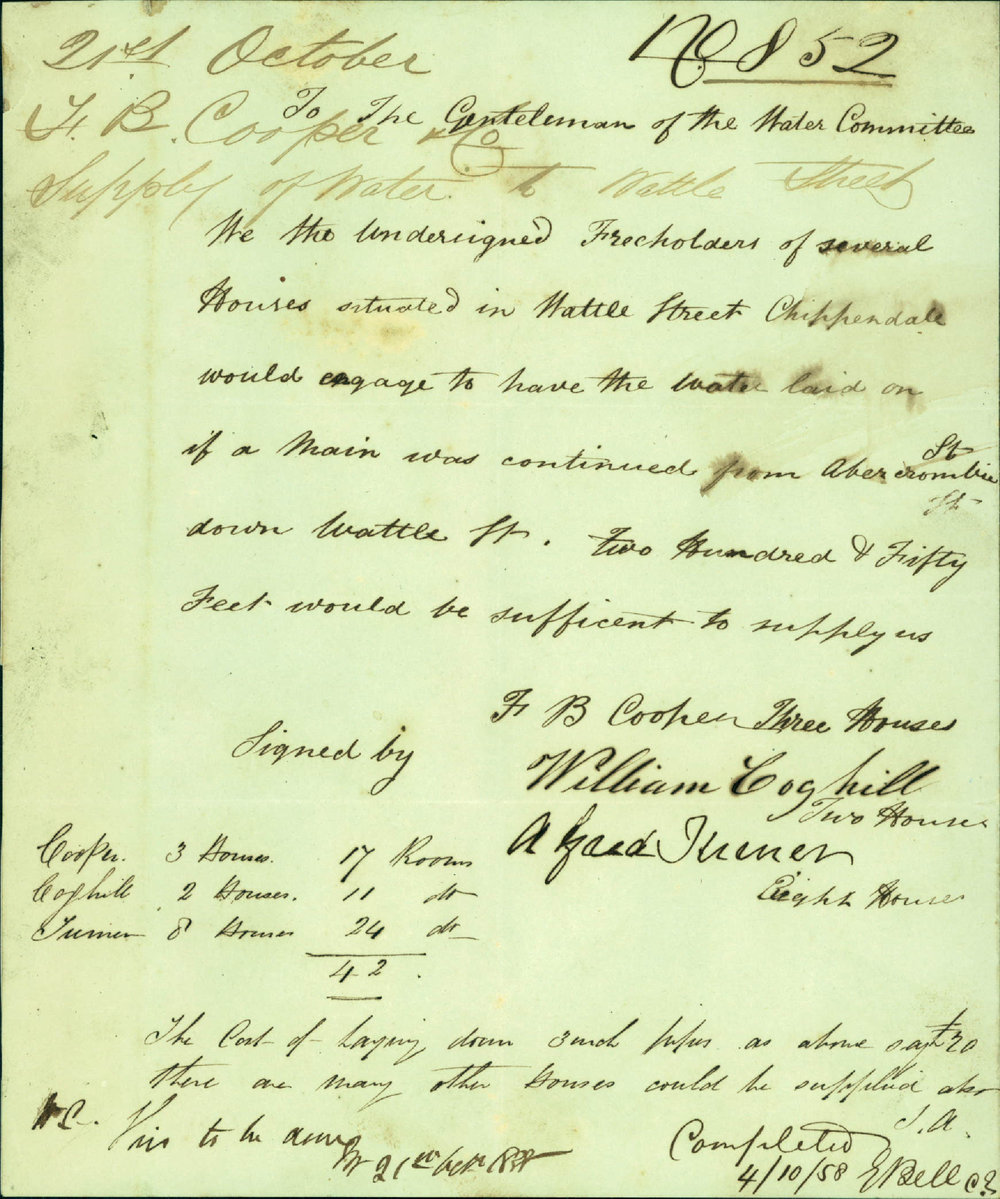 21st October
No 852
F. B. Cooper & Co
To The Genteleman of the Water Committee
Supply of Water to Wattle Street
We the Undersigned Freeholders of several
Houses situated in Wattle Street Chippendale
would engage to have the water laid on
if a Main was continued from Abercrombie St
St
down Wattle St. Two Hundred & Fifty
Feet would be sufficent to supply us
F B Cooper Three Houses
Signed by
William Coghill
Two Houses
Alfred Turner
Eight Houses
Cooper. 3 Houses. 17 Rooms
Coghill 2 Houses. 11 do
Turner 8 Houses 24 do
42.
The Cost of laying down 3 inch pipes as above say £20
there are many other Houses could be supplied also
J. A.
W.C. This to be done
21st Octr 1858
Completed
4/10/58 E Bell C.E.